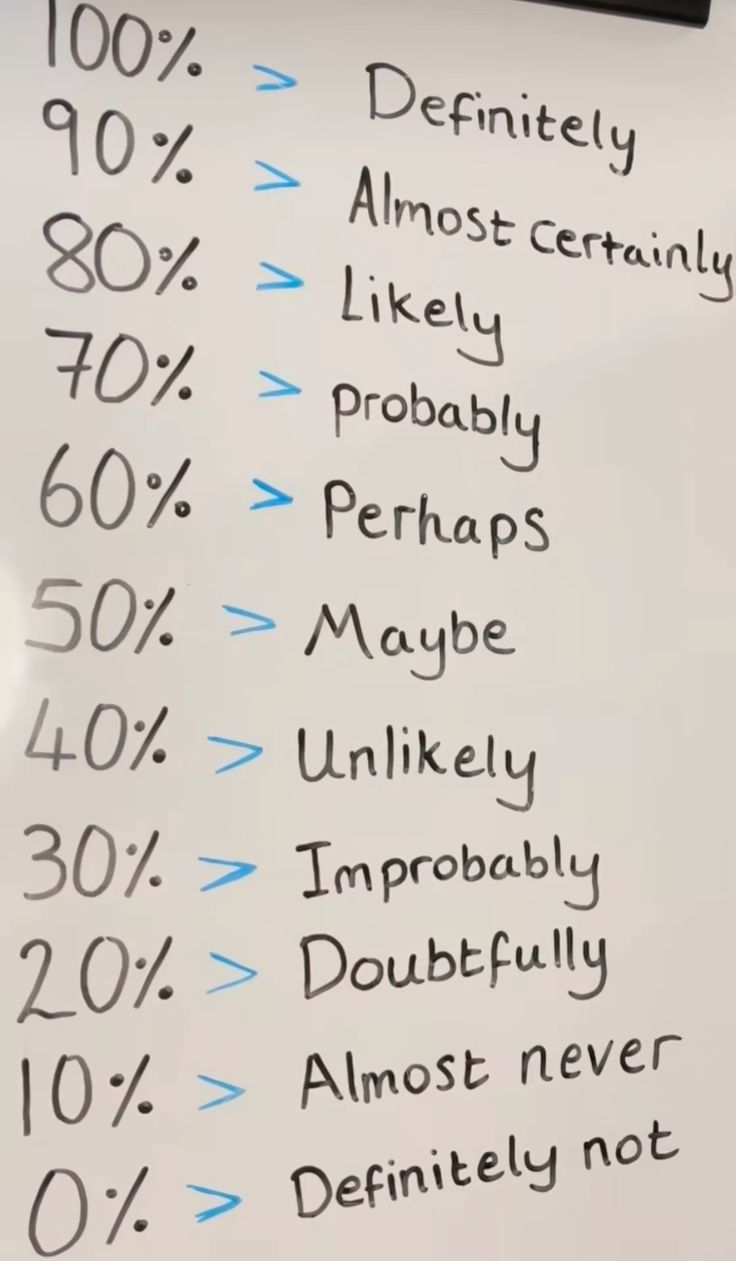 100% > Definitely
90% > Almost certainly
80% > Likely
70% > probably
60% > Perhaps
50% > Maybe
40% > Unlikely
30% > Improbably
20% > Doubtfully
10% > Almost never
0% > Definitely not